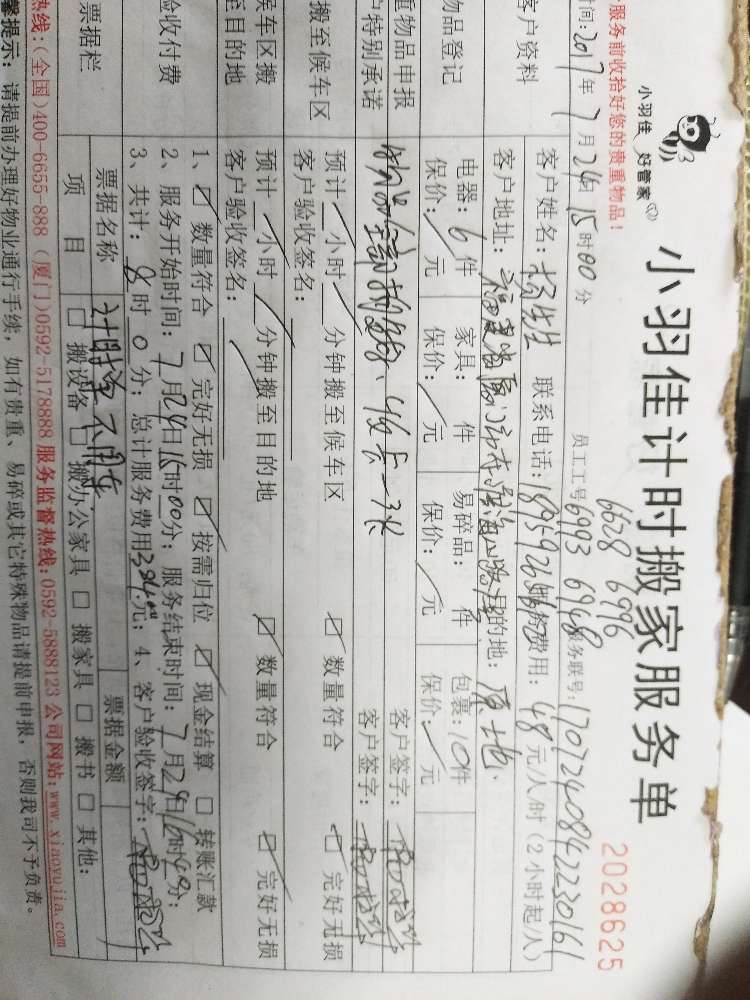 小羽佳 好管家
小羽佳计时搬家服务单
2028625
服务前收拾好您的贵重物品！
员工工号 6628 6996
6993 6948
服务联号：1707240842230161
时间：2017年7月24日15时00分
客户资料
客户姓名：杨先生 联系电话： 服务费用：48元/人/时（2小时起/人）
客户地址：福建省厦门市 目的地：原地
物品登记
电器：6件 家具： 件 易碎品： 件 包裹：10件
保价： 元 保价： 元 保价： 元 保价： 元
物品申报
特别承诺
客户签字：
客户签字：
搬至候车区
预计 小时 分钟搬至候车区 数量符合 完好无损
客户验收签名：
候车区搬
至目的地
预计 小时 分钟搬至目的地 数量符合 完好无损
客户验收签名：
验收付费
1、 数量符合 完好无损 按需归位 现金结算 转账汇款
2、服务开始时间：7月24日15时00分；服务结束时间：7月24日16时40分；
3、共计：8时0分；总计服务费用384.00元；4、客户验收签字：
票据栏
票据名称 票据金额
项 目 搬设备 搬办公家具 搬家具 搬书 其他：
热线：(全国)400-6655-888 (厦门)0592-5178888 服务监督热线：0592-5888123 公司网站：www.xiaoyujia.com
馨提示：请提前办理好物业通行手续，如有贵重、易碎或其它特殊物品请提前申报，否则我司不予负责。